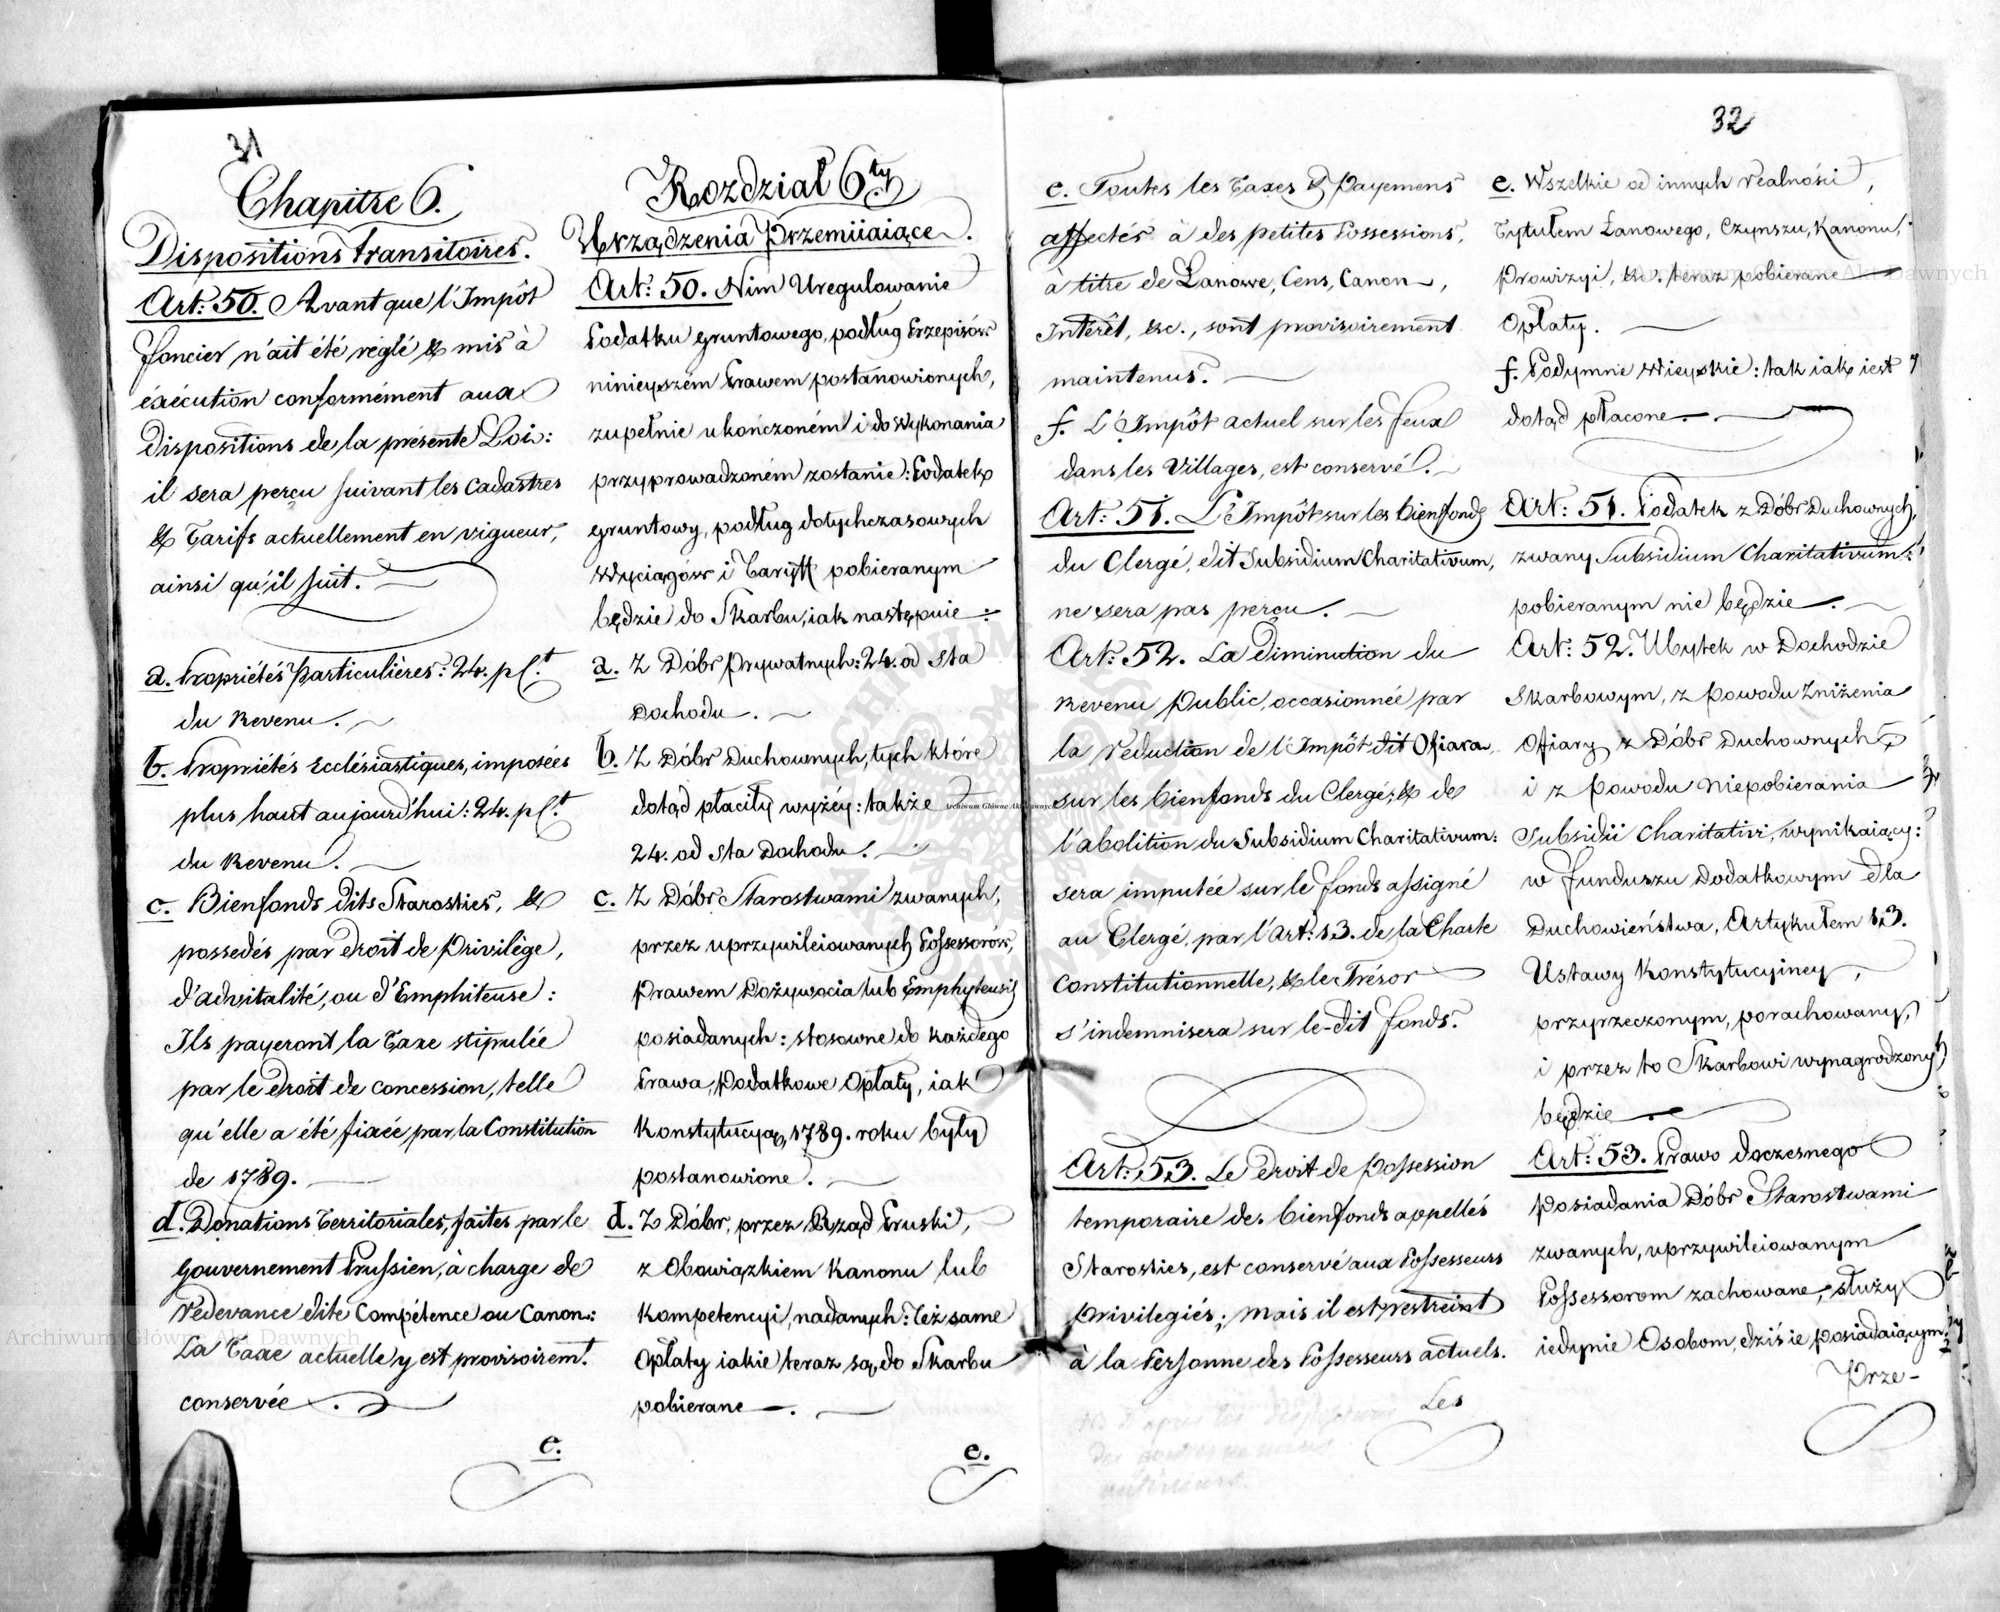 31
Chapitre 6.
Dispositions transitoires.
Art: 50. Avant que l'Impôt
foncier n'ait été réglé & mis à
éxécution conformément aux
Dispositions de la présente Loi:
il sera perçu suivant les Cadastres
& Tarifs actuellement en vigueur,
ainsi qu'il suit.
a. Propriétés particulières: 24. p C.t
du Revenu.
b. Propriétés Ecclésiastiques, imposées
plus haut aujourd'hui: 24. p C.t
du Revenu.
c. Bienfonds dits Starosties, &
possedés par droit de Privilége,
d'advitalité, ou d'Emphiteuse:
Ils payeront la Taxe stipulée
par le Droit de concession, telle
qu'elle a été fixée par la Constitution
de 1789.
d. Donations Territoriales, faites par le
Gouvernement Prussien, à charge de
Redevance dite Compétence ou Canon:
La Taxe actuelle y est provisoirem.t
conservée.
e.
Rozdział 6.ty
Urządzenia Przemiiaiące.
Art: 50. Nim Uregulowanie
Podatku gruntowego, podług Przepisów
ninieyszem Prawem postanowionych,
zupełnie ukończoném i do Wykonania
przyprowadzoném zostanie: Podatek
gruntowy, podług dotychczasowych
Wyciągów i Taryff pobieranym
będzie do Skarbu, iak następuie:
a. Z Dóbr Prywatnych: 24. od Sta
Dochodu.
b. Z Dóbr Duchownych, tych które
dotąd płaciły wyżéy: także
24. od Sta Dochodu.
c. Z Dóbr Starostwami zwanych,
przez uprzywileiowanych Possessorów,
Prawem Dożywocia lub Emphyteusis
posiadanych: stosowne do każdego
Prawa, Podatkowe Opłaty, iak
Konstytucyą 1789. roku były
postanowione.
d. Z Dóbr, przez Rząd Pruski,
z Obowiązkiem Kanonu lub
Kompetencyi, nadanych: Też same
Opłaty iakie teraz są do Skarbu
pobierane.
e.
32
e. Toutes les Taxes & Payemens
affectés à des petites Possessions,
à titre de Łanowe, Cens, Canon,
Intérêt, &c., sont provisoirement
maintenus.
f. L'Impôt actuel sur les feux
dans les Villages, est conservé.
Art: 51. L'Impôt sur les bienfonds
du Clergé, dit Subsidium Charitativum,
ne sera pas perçu.
Art: 52. La Diminution du
Revenu Public, occasionnée par
la réduction de l'Impôt dit Ofiara
sur les bienfonds du Clergé, & de
l'abolition du Subsidium Charitativum:
sera imputée sur le fonds assigné
au Clergé, par l'Art: 13. de la Charte
Constitutionnelle, & le Trésor
s'indemnisera sur le-dit fonds.
Art: 53. Le Droit de Possession
temporaire des bienfonds appellés
Starosties, est conservé aux Possesseurs
Privilegiés; mais il est restreint
à la Personne des Possesseurs actuels.
Les
e. Wszelkie od innych realności,
Tytułem Łanowego, Czynszu, Kanonu,
Prowizyi, &c. teraz pobierane
Opłaty.
f. Podymne Wieyskie: tak iak iest
dotąd płacone.
Art: 51. Podatek z Dóbr Duchownych,
zwany Subsidium Charitativum:
pobieranym nie będzie.
Art: 52. Ubytek w Dochodzie
Skarbowym, z Powodu Zniżenia
Ofiary z Dóbr Duchownych,
i z Powodu Niepobierania
Subsidii Charitativi, wynikaiący:
w Funduszu Dodatkowym dla
Duchowieństwa, Artykułem 13.
Ustawy Konstytucyiney,
przyrzeczonym, porachowany,
i przez to Skarbowi wynagrodzony
będzie
Art: 53. Prawo doczesnego
Posiadania Dóbr Starostwami
zwanych, uprzywileiowanym
Possessorom zachowane, służy
iedynie Osobom, dziś ie posiadaiącym.
Prze-
Archiwum Główne Akt Dawnych